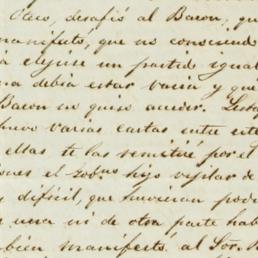 Oceo, desafió al Baron, qu
manifestó, que no consciendo
á elejirse un partid igual
na debia estar vacia y qué
Baron no quiso acceder. Lesta
huvo varias cartas entre este
ellas te las remitiré por el
iones el Gobno hizo vijilar de
y dificil, que tuvieran podi
n una ni de otra parte hab
bien manifestó al Sor. B